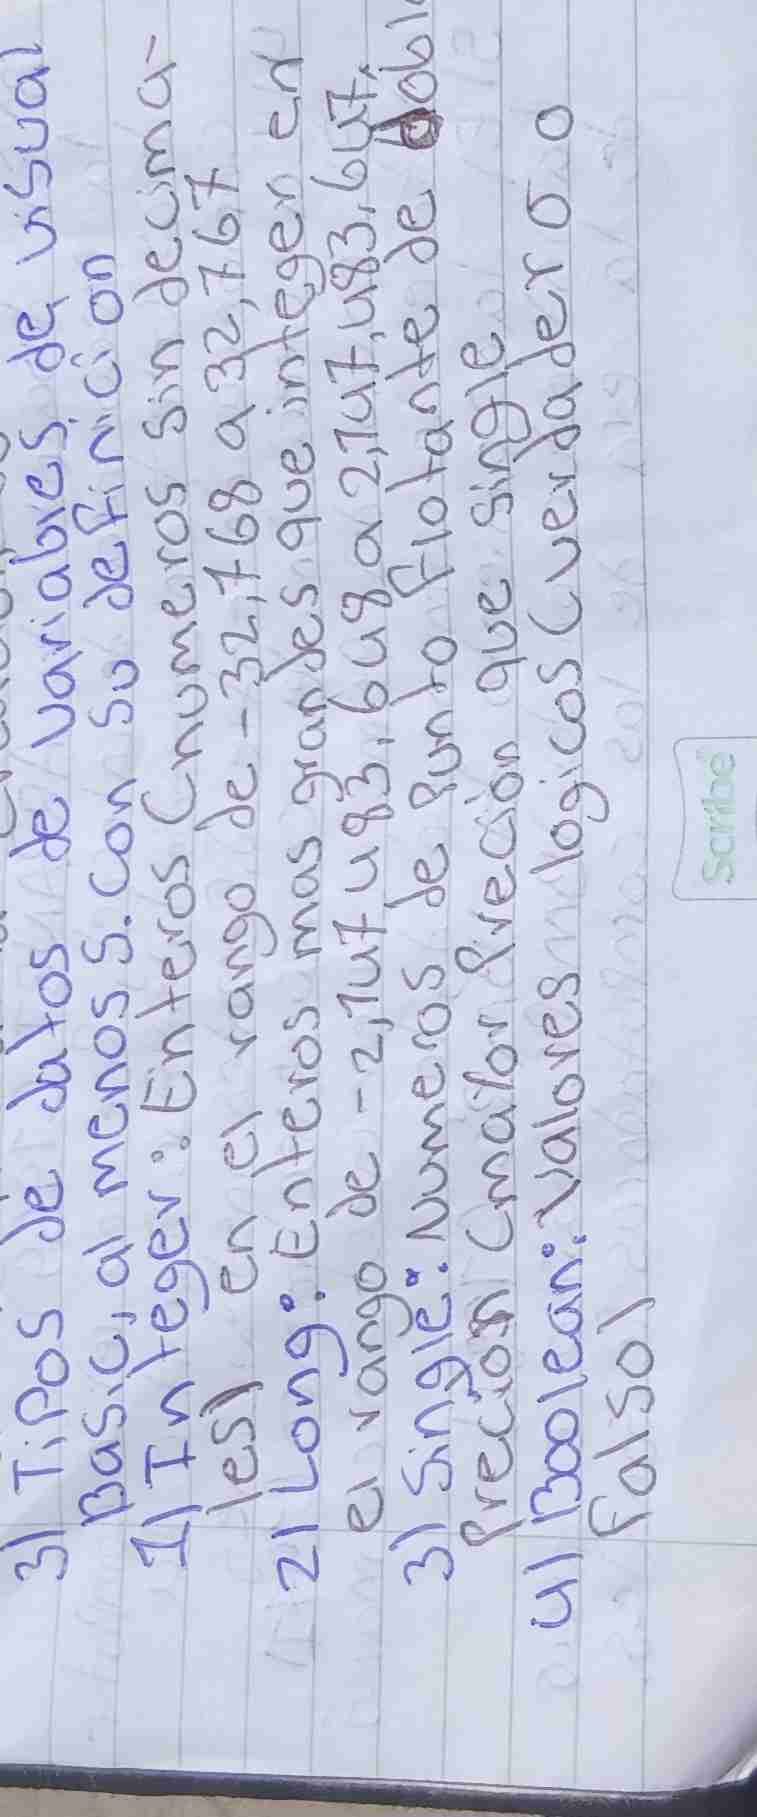 3) Tipos de datos de variables de visual
Basic, al menos 5. con su definicion
1) Integer: Enteros (numeros sin decima-
les) en el rango de -32,768 a 32,767
2) Long: Enteros mas grandes que integer en
el rango de -2,147 483,648 a 2,147,483,647,
3) Single: Numeros de punto flotante de dobl
Precioin (mayor Precion que single
4) Boolean: Valores logicos (verdadero o
falso)
Scribe